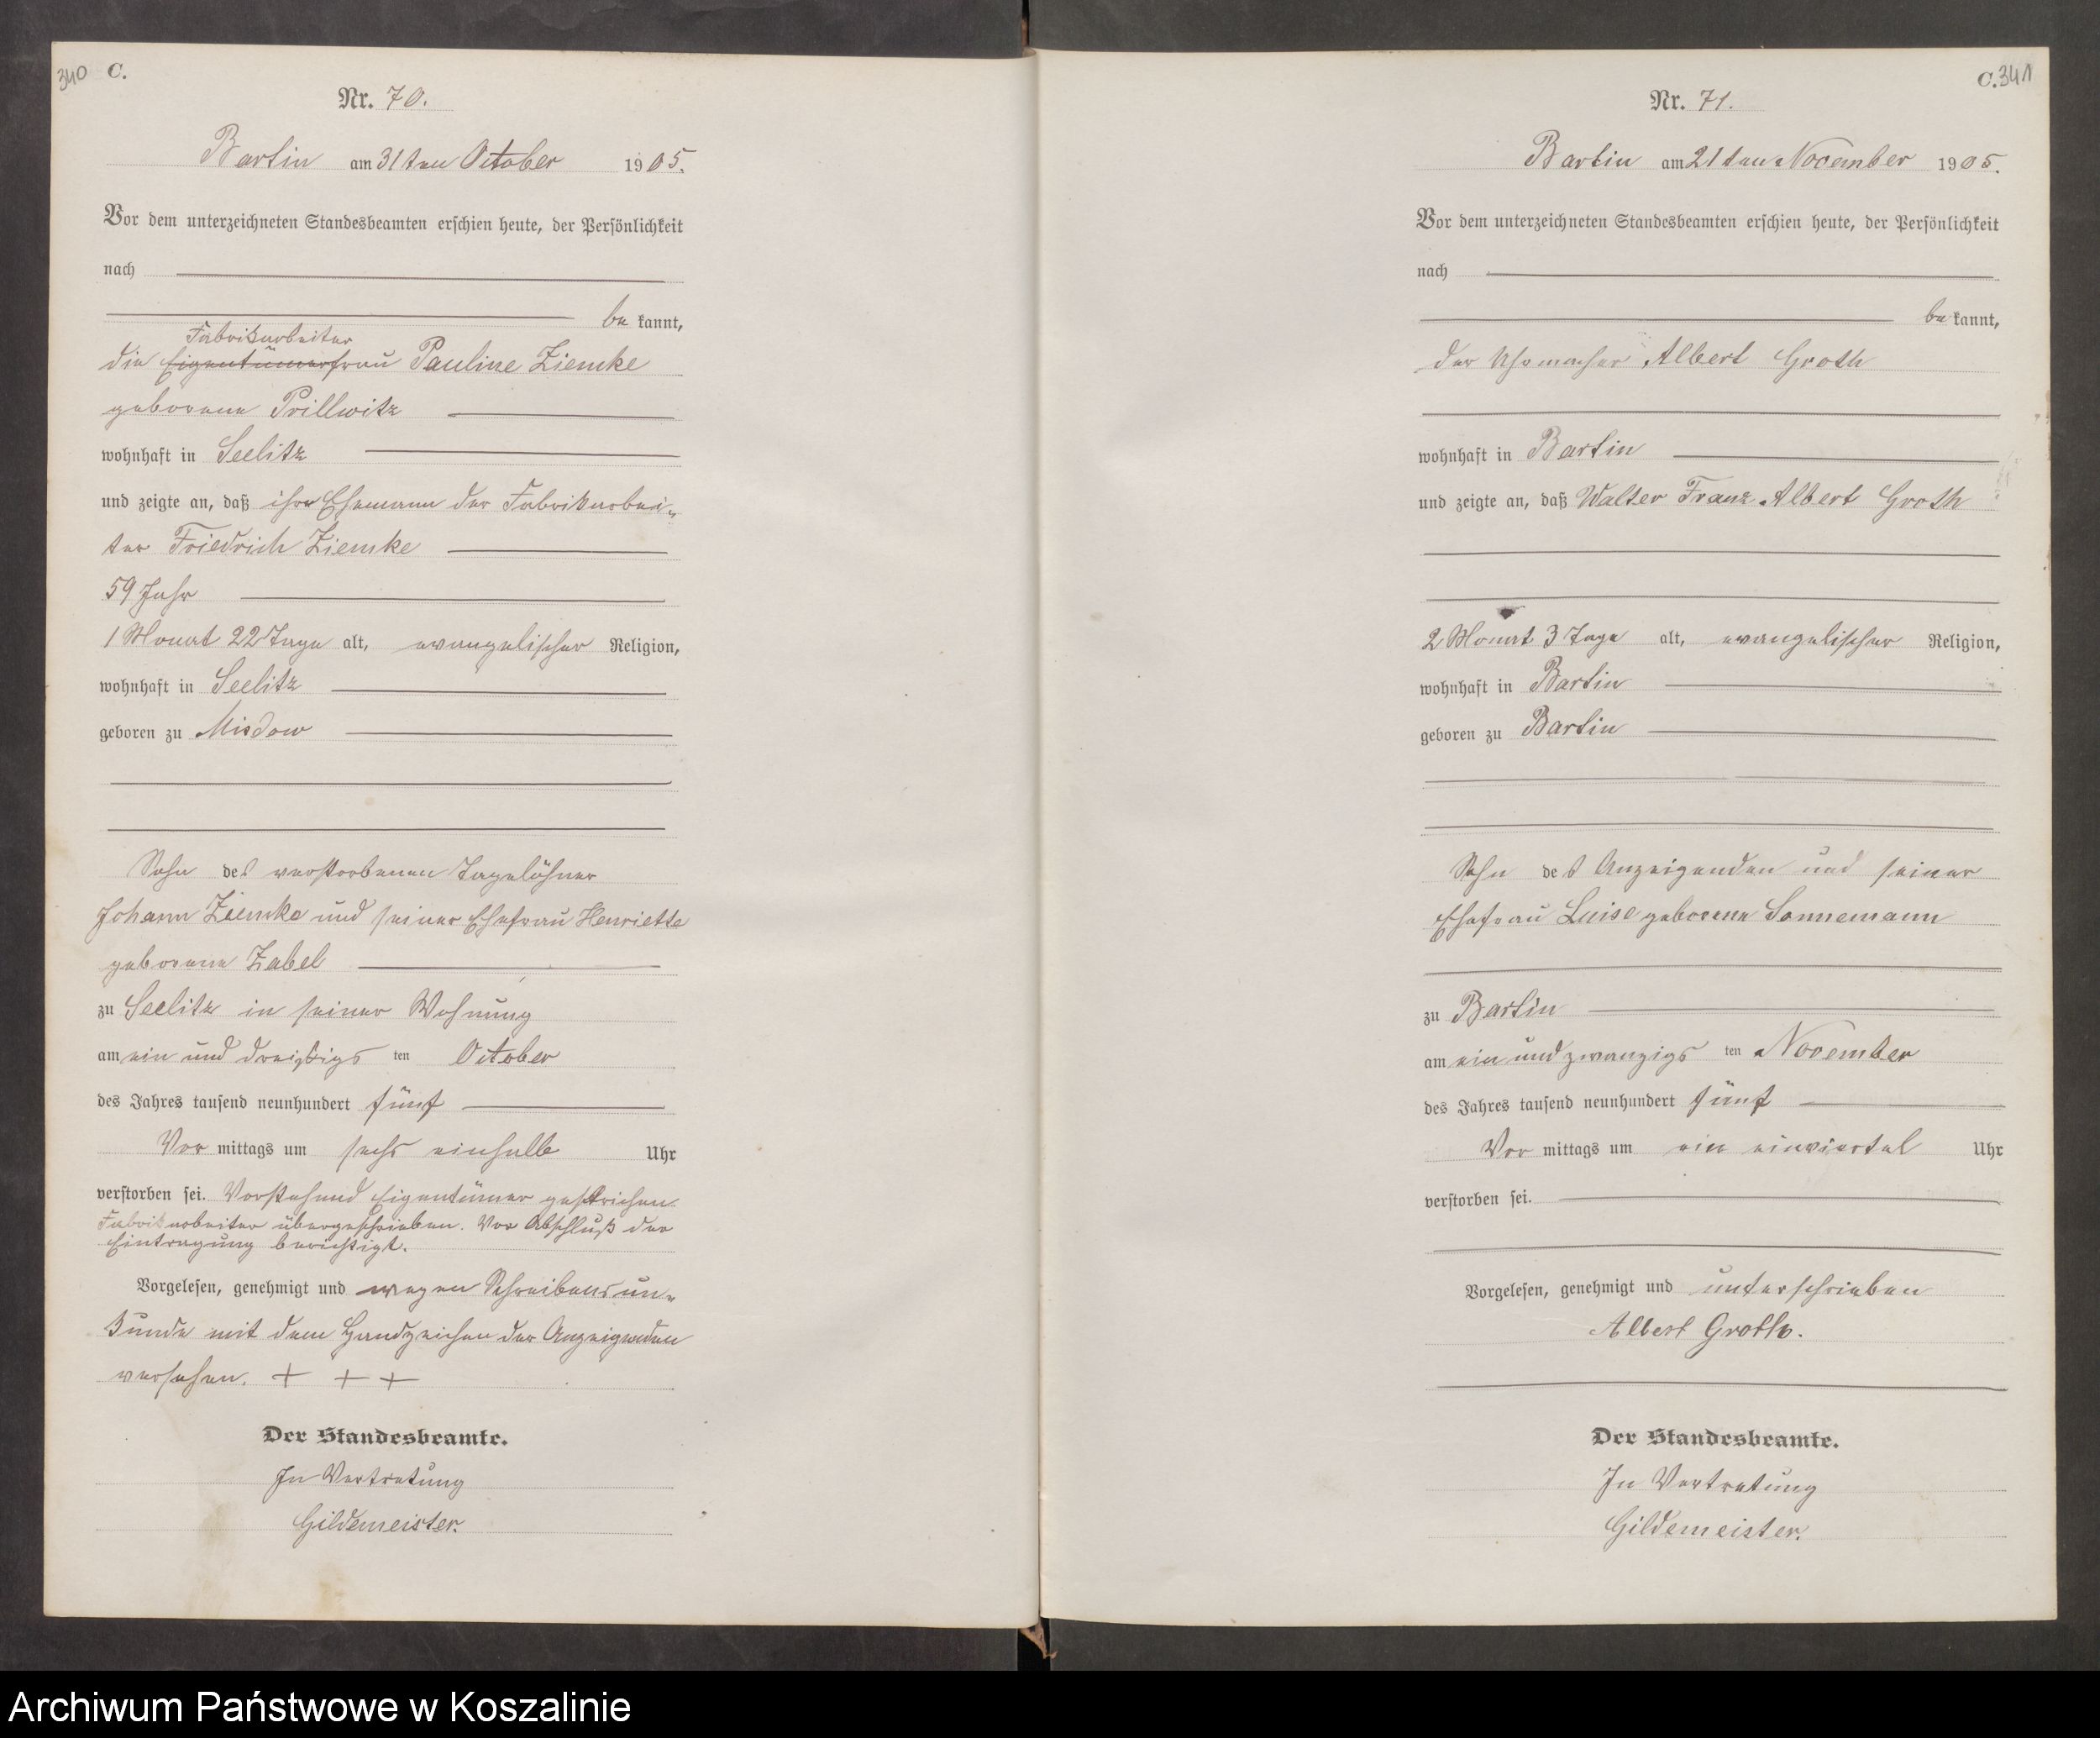 340 C.
Nr. 70.
Bartin am 31ten October 1905.
Vor dem unterzeichneten Standesbeamten erschien heute, der Persönlichkeit
nach
be kannt,
Fabrikarbeiter
die Eigentümerfrau Pauline Ziemke
geborene Prillwitz
wohnhaft in Seelitz
und zeigte an, daß ihr Ehemann der Fabrikarbei-
ter Friedrich Ziemke
59 Jahr
1 Monat 22 Tage alt, evangelischer Religion,
wohnhaft in Seelitz
geboren zu Misdow
Sohn des verstorbenen Tagelöhner
Johann Ziemke und seiner Ehefrau Henriette
geborene Zabel
zu Seelitz in seiner Wohnung
am ein und dreißigs ten October
des Jahres tausend neunhundert fünf
Vor mittags um sechs einhalb Uhr
verstorben sei. Vorstehend Eigentümer gestrichen
Fabrikarbeiter übergeschrieben. Vor Abschluß der
Eintragung berichtigt.
Vorgelesen, genehmigt und wegen Schreibensun-
kunde mit dem Handzeichen der Anzeigenden
versehen. + + +
Der Standesbeamte.
In Vertretung
Gildemeister.
C. 341
Nr. 71.
Bartin am 21ten November 1905.
Vor dem unterzeichneten Standesbeamten erschien heute, der Persönlichkeit
nach
be kannt,
der Uhrmacher Albert Groth
wohnhaft in Bartin
und zeigte an, daß Walter Franz Albert Groth
2 Monat 3 Tage alt, evangelischer Religion,
wohnhaft in Bartin
geboren zu Bartin
Sohn des Anzeigenden und seiner
Ehefrau Luise geborene Sonnemann
zu Bartin
am ein und zwanzigs ten November
des Jahres tausend neunhundert fünf
Vor mittags um ein einviertel Uhr
verstorben sei.
Vorgelesen, genehmigt und unterschrieben
Albert Groth.
Der Standesbeamte.
In Vertretung
Gildemeister.
Archiwum Państwowe w Koszalinie